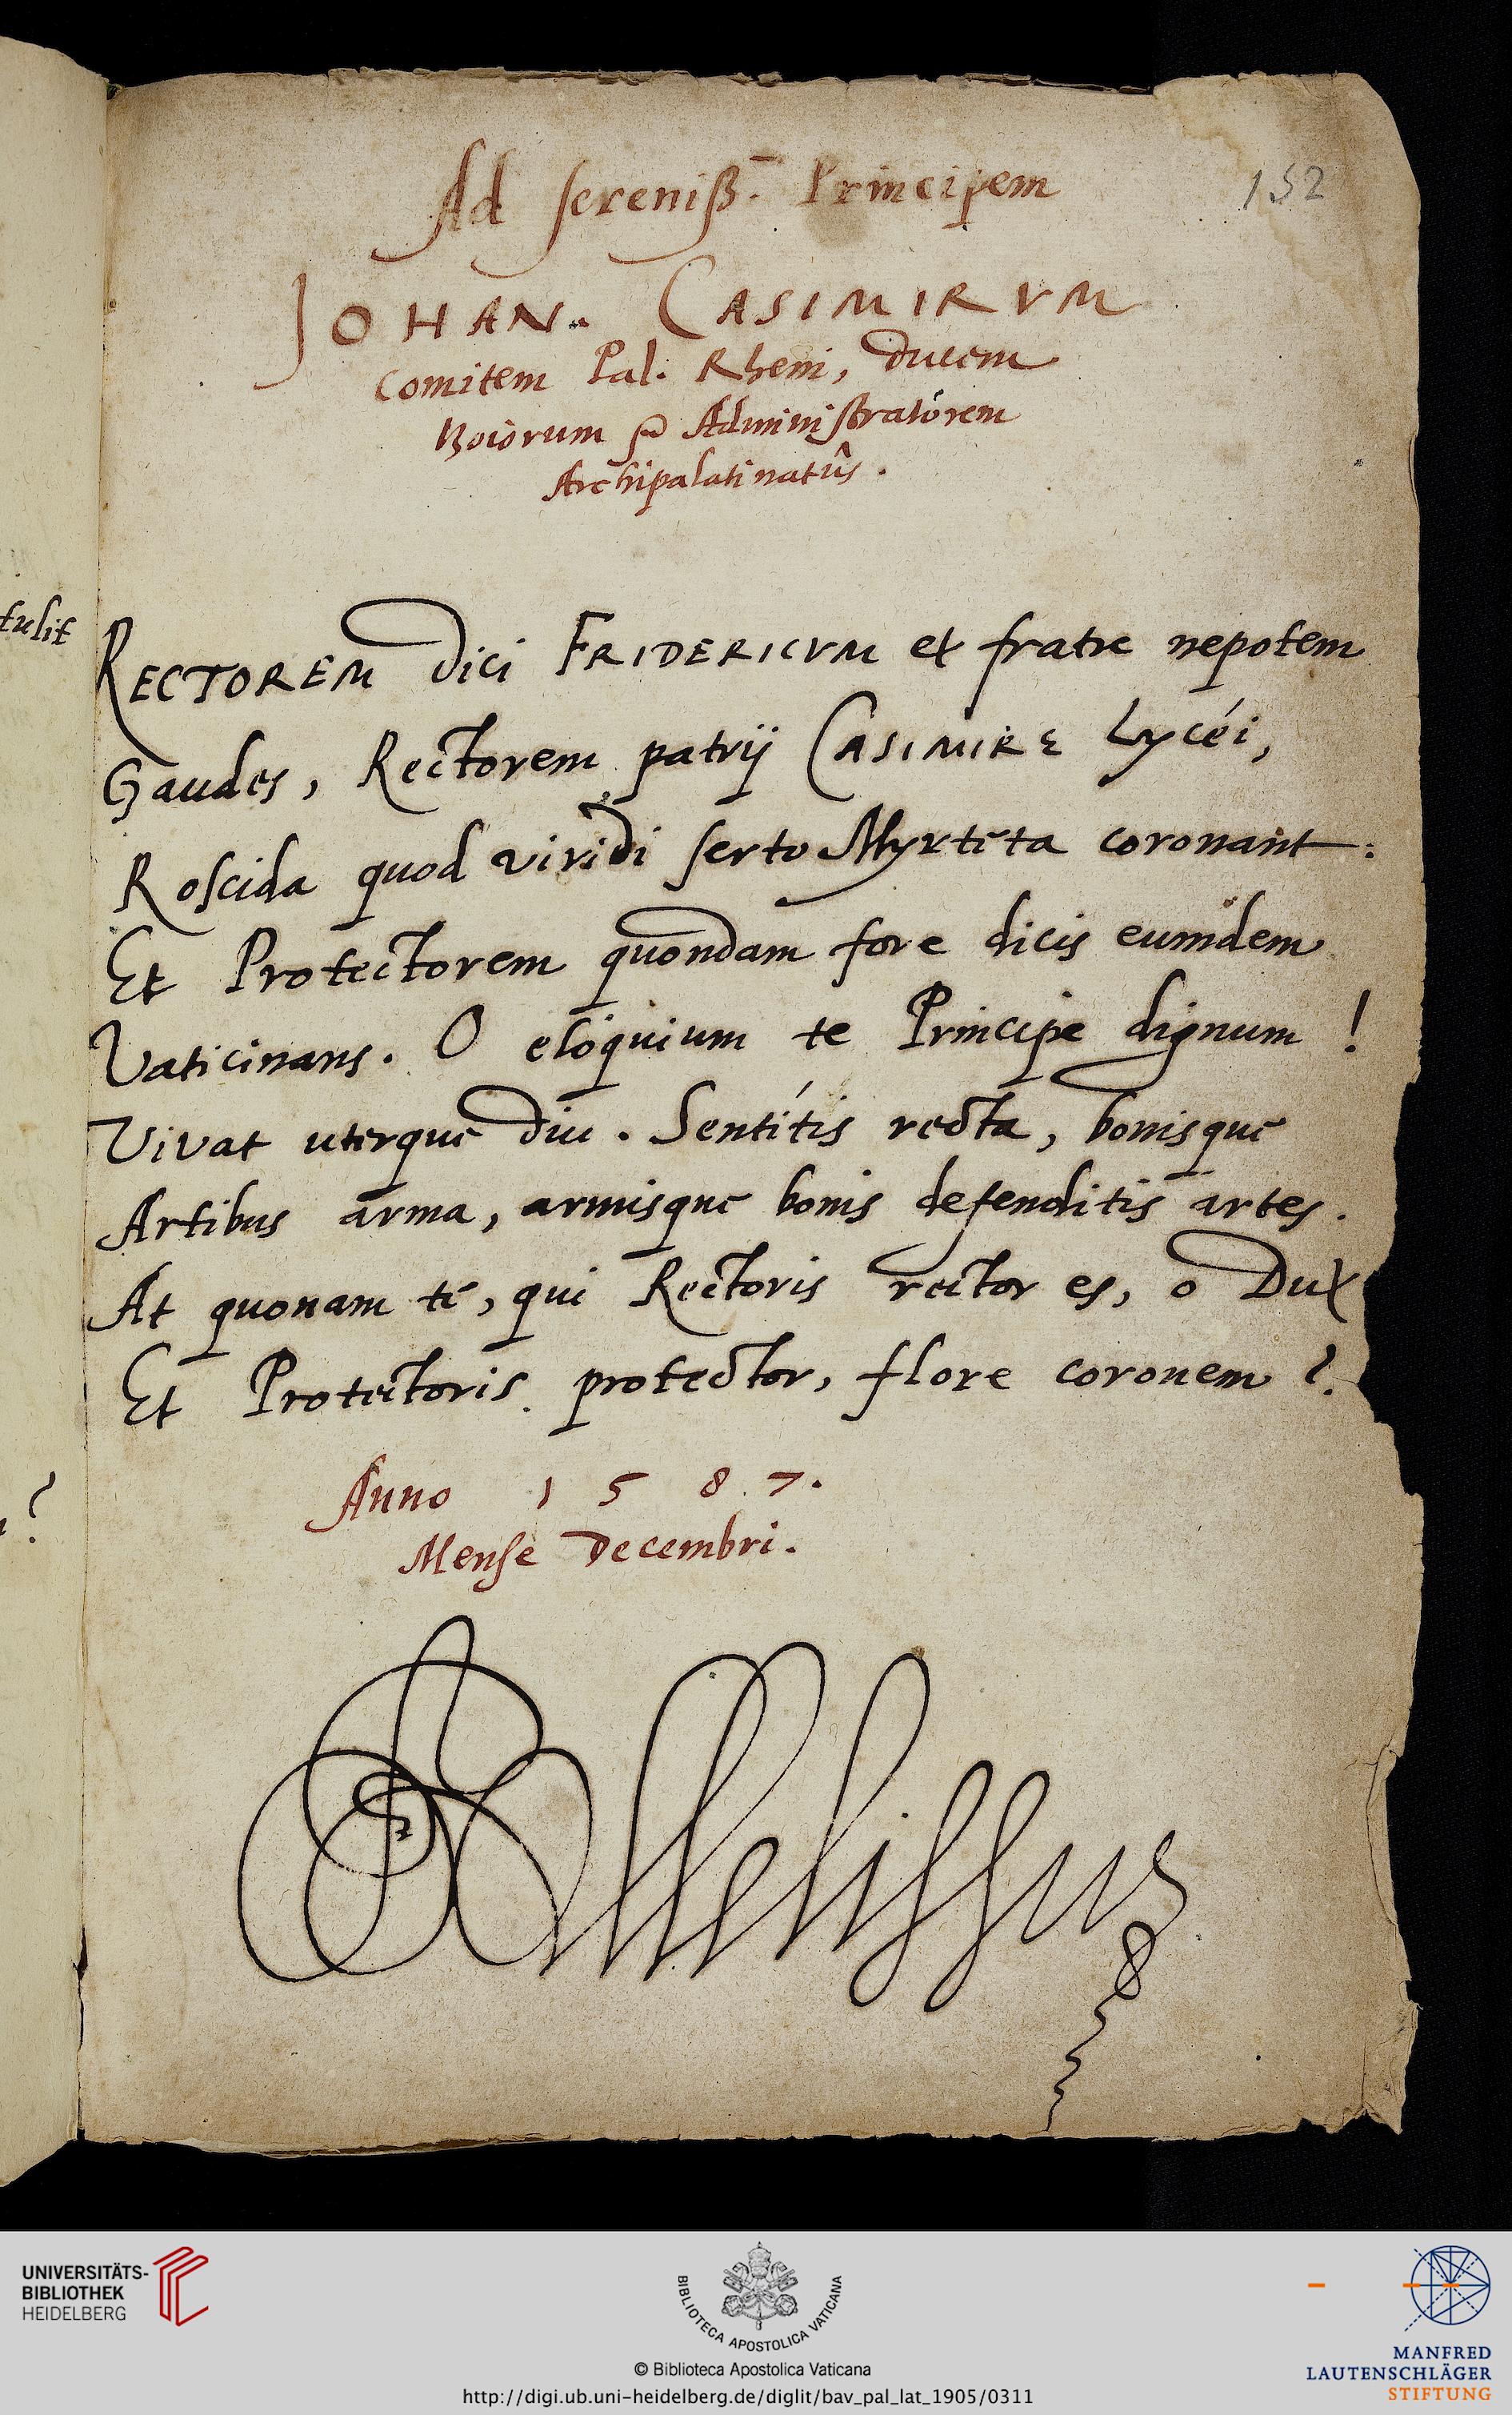 152
Ad sereniß.̄ Principem
IOHAN. CASIMIRVM
Comitem Pal. Rheni, ducem
Boiorum & Administratórem
Archipalatinatûs.
tulit
RECTOREM dici FRIDERICVM et fratre nepotem
Gaudes, Rectorem patrij CASIMIRE Lycéi,
Roscida quod viridi serto Myrteta coronant:
Et Protectorem quondam fore dicis eumdem
Vaticinans. O eloquium te Principe dignum!
Vivat uterque diu. Sentítis recta, bonisque
Artibus arma, armisque bonis defenditis artes.
At quonam té, qui Rectoris rector es, o Dux
Et Protectoris protector, flore coronem?
?
Anno 1587.
Mense Decembri.
Melissus
UNIVERSITÄTS-
BIBLIOTHEK
HEIDELBERG
BIBLIOTECA APOSTOLICA VATICANA
© Biblioteca Apostolica Vaticana
http://digi.ub.uni-heidelberg.de/diglit/bav_pal_lat_1905/0311
MANFRED
LAUTENSCHLÄGER
STIFTUNG